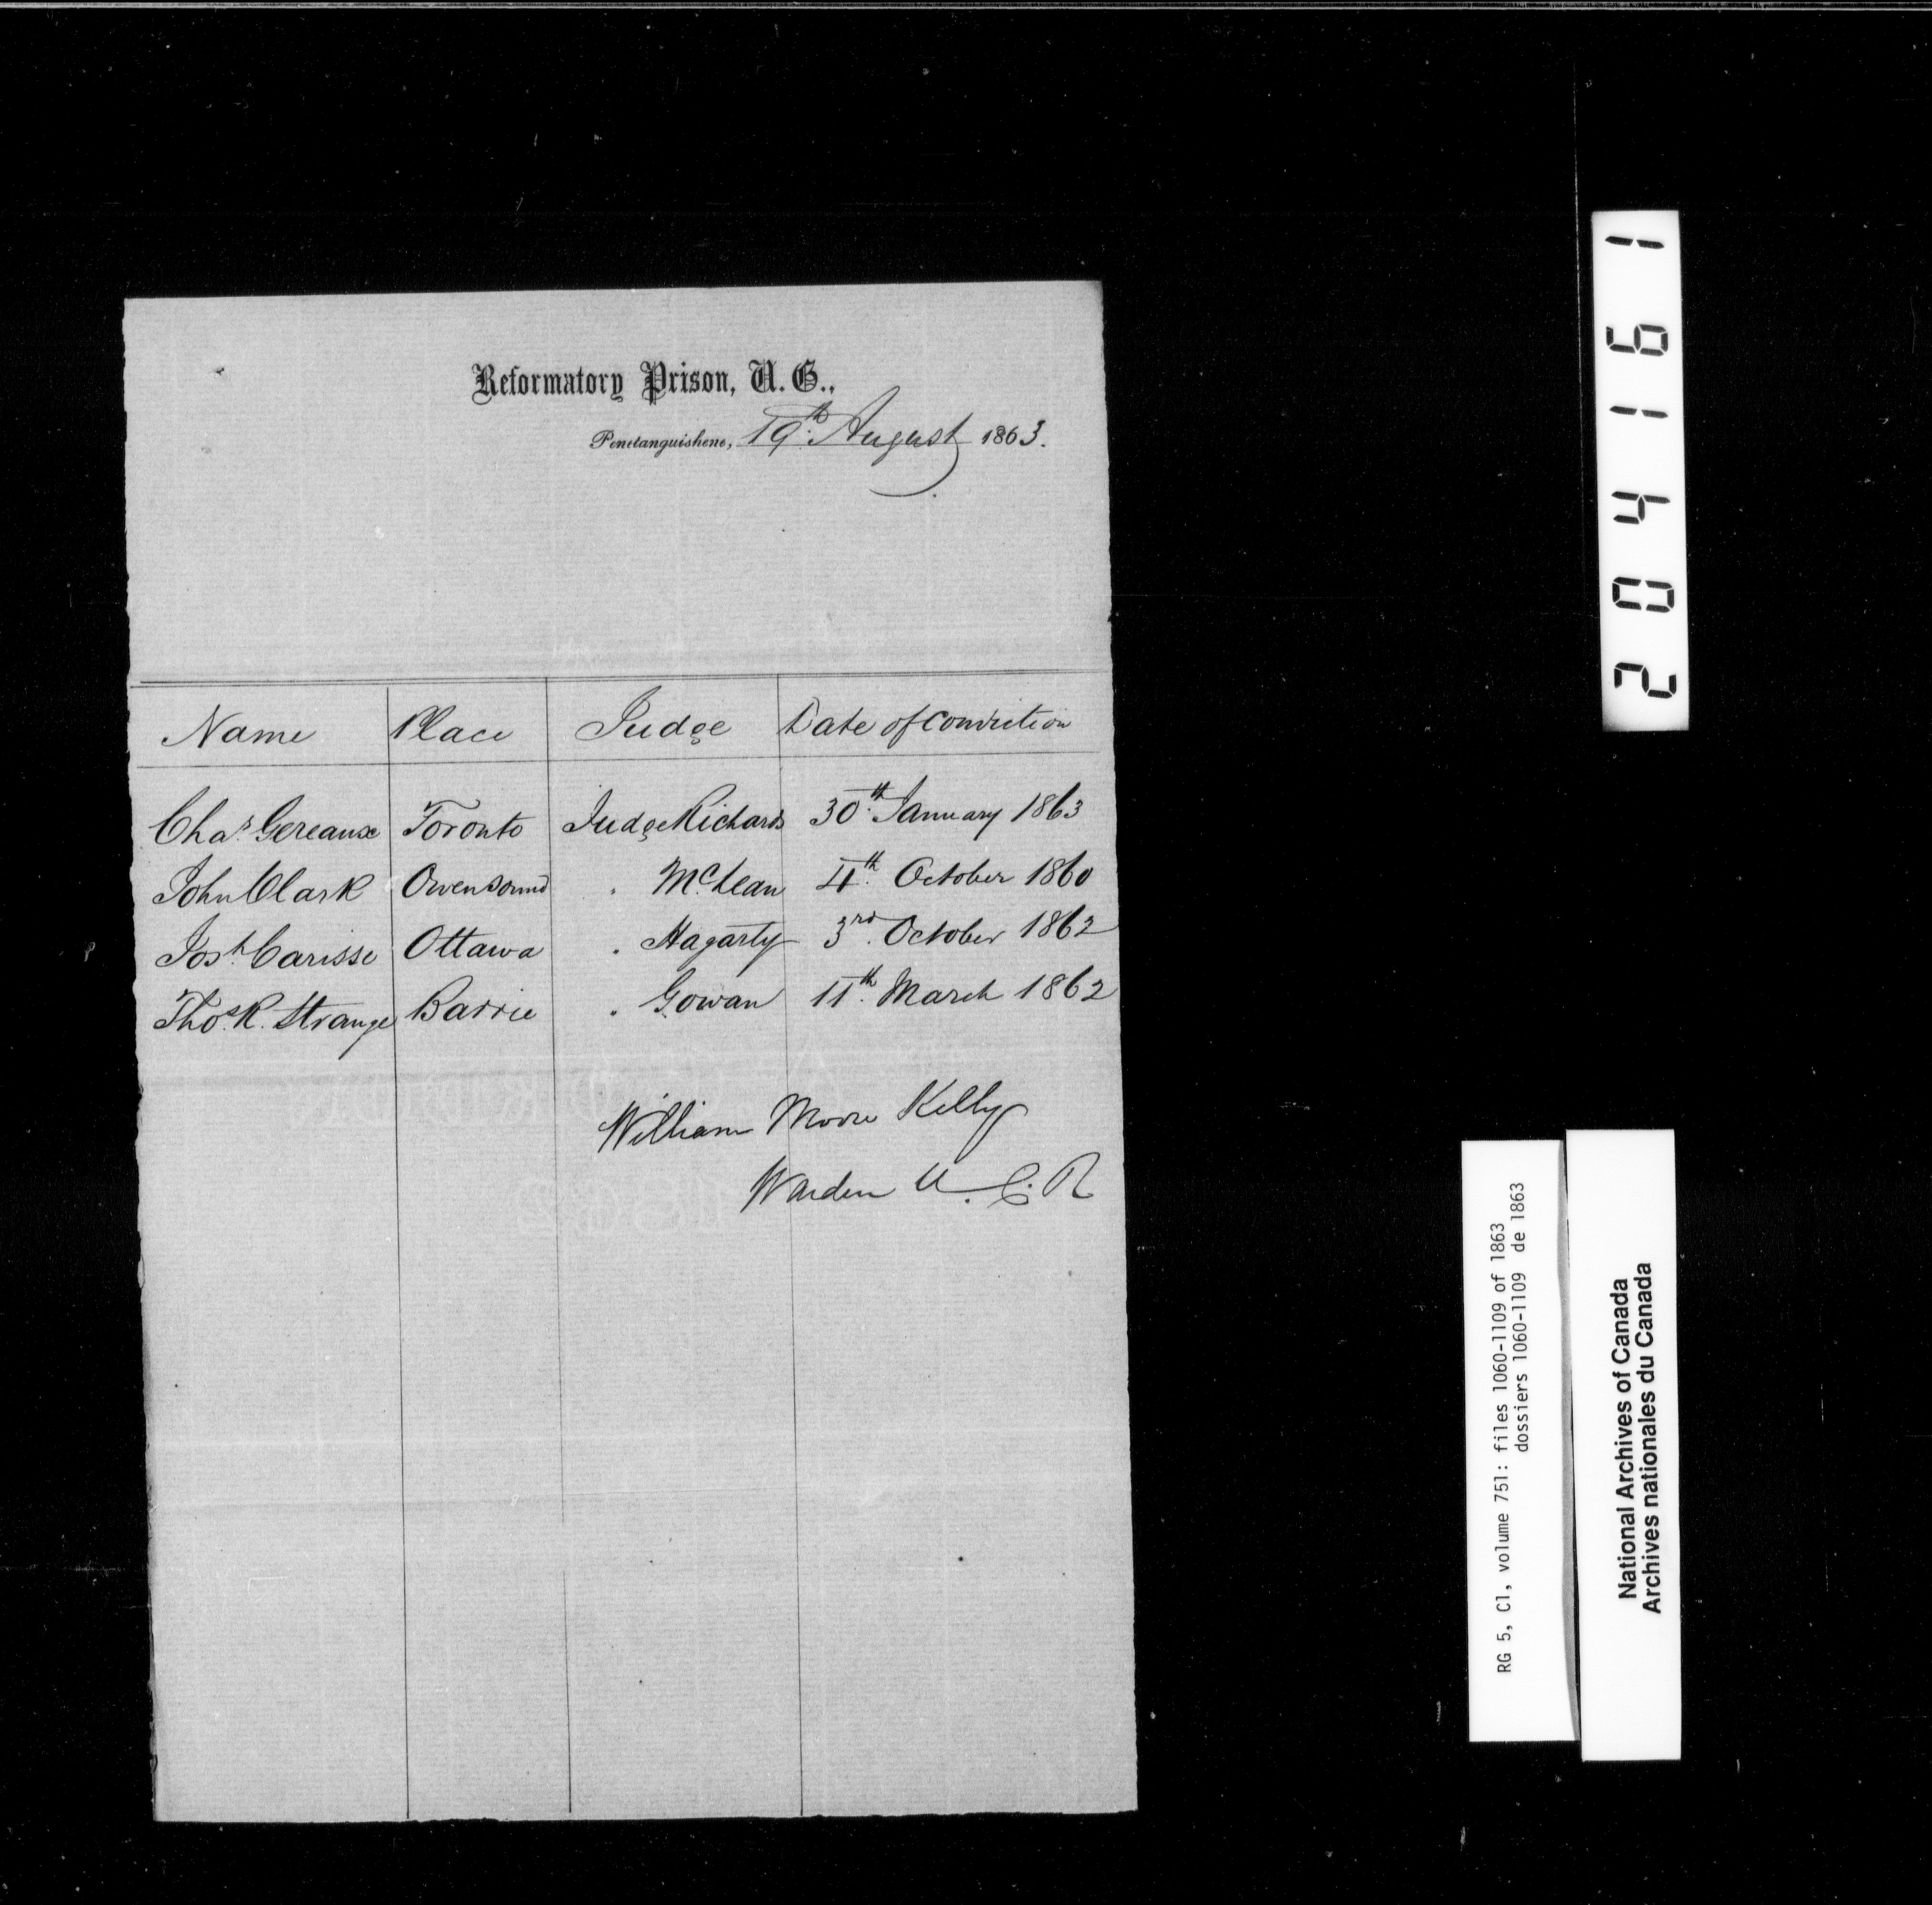 Reformatory Prison, U. C.,
Penetanguishene, 19th August 1863.
Name Place Judge Date of Conviction
Chas. Gereaux Toronto Judge Richards 30th January 1863
John Clark Owensound " McLean 4th October 1860
Josh. Carisse Ottawa " Hagarty 3rd October 1862
Thos. R. Strange Barrie " Gowan 11th March 1862
William Moore Kelly
Warden U. C. R
204161
RG 5, C1, volume 751: files 1060-1109 of 1863
dossiers 1060-1109 de 1863
National Archives of Canada
Archives nationales du Canada